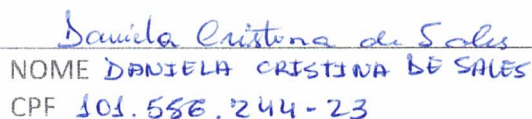 Daniela Cristina de Sales
NOME DANIELA CRISTINA DE SALES
CPF 101.556.244-23